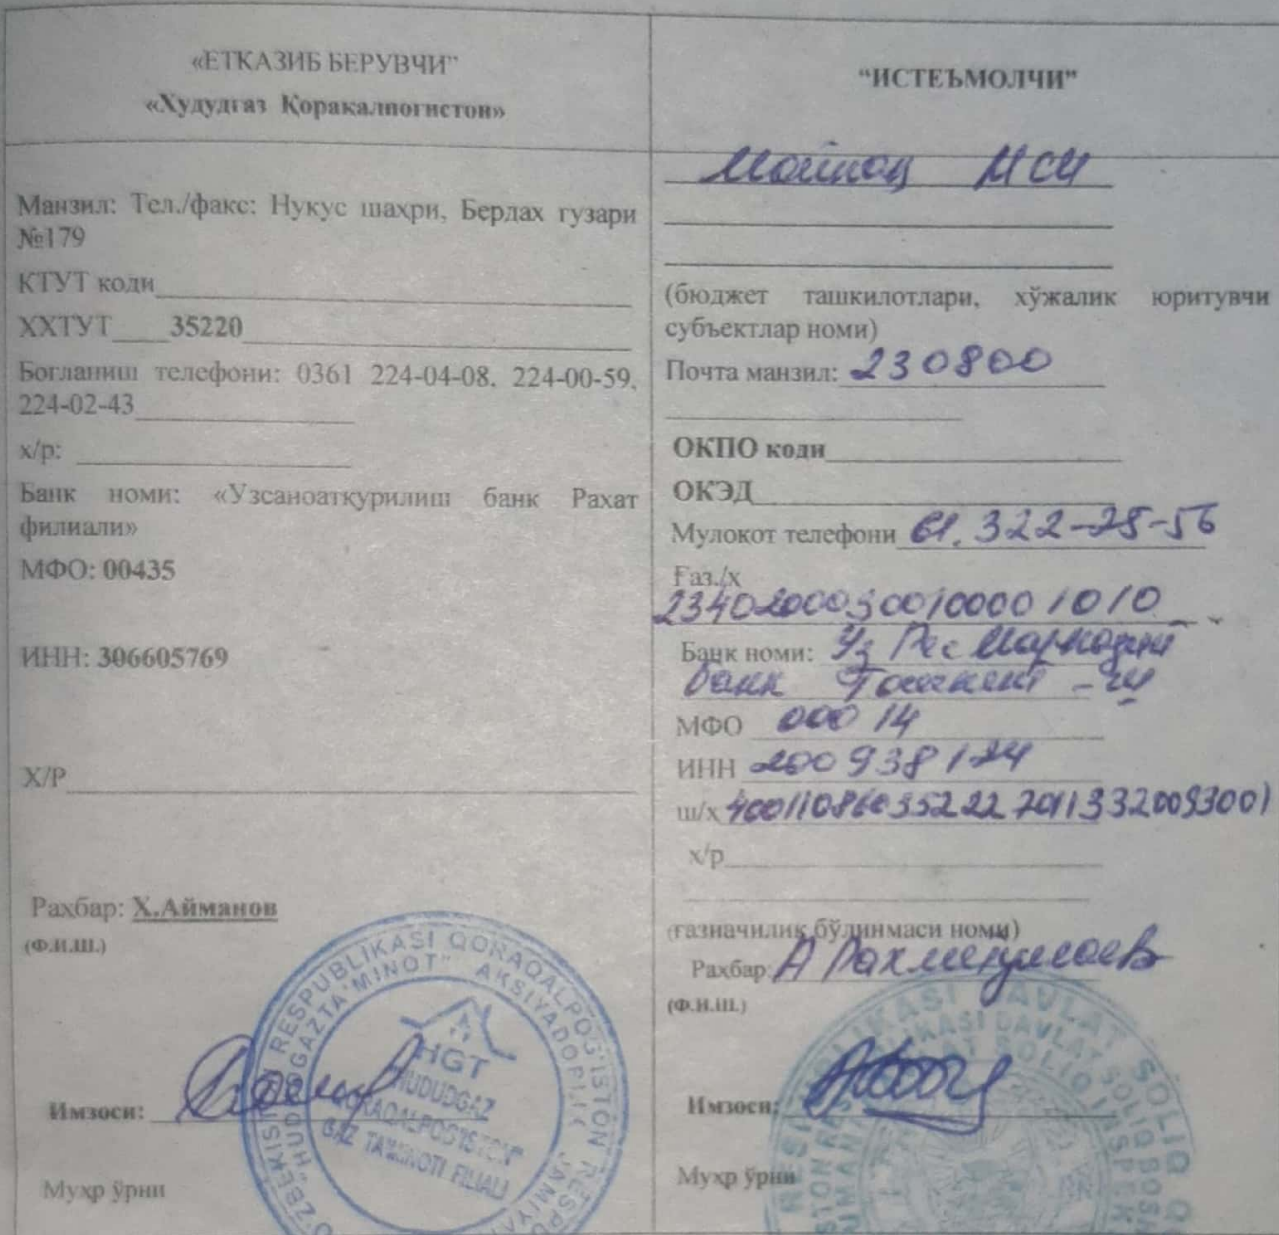 «ЕТКАЗИБ БЕРУВЧИ"
«Худудгаз Қорақалпогистон»
Манзил: Тел./факс: Нукус шаҳри, Бердах гузари
№179
КТУТ коди
ХХТУТ 35220
Богланиш телефони: 0361 224-04-08, 224-00-59,
224-02-43
х/р:
Банк номи: «Узсаноатқурилиш банк Рахат
филиали»
МФО: 00435
ИНН: 306605769
Х/Р
Раҳбар: Х.Айманов
(Ф.И.Ш.)
Имзоси:
Муҳр ўрни
HGT
HUDUDGAZ
QORAQALPOG'ISTON"
GAZ TA'MINOTI FILIALI
"ИСТЕЪМОЛЧИ"
Мойнақ МСИ
(бюджет ташкилотлари, хўжалик юритувчи
субъектлар номи)
Почта манзил: 230800
ОКПО коди
ОКЭД
Мулоқот телефони 61. 322-25-56
Ғаз./х
23402000300100001010
Банк номи: Уз Рес Марказий
банк Тошкент-ш
МФО 00014
ИНН 200938124
ш/х 4001108603522270113320093001
х/р
(ғазначилик бўлинмаси номи)
Раҳбар: А
(Ф.И.Ш.)
Имзоси:
Муҳр ўрни